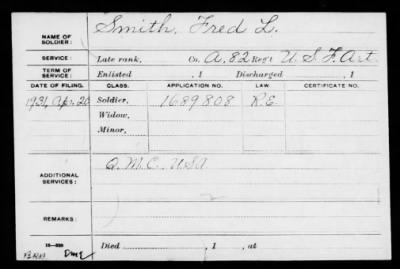 NAME OF SOLDIER: Smith, Fred L.
SERVICE: Late rank, Co. A, 82 Reg't U.S.F. Art.
TERM OF SERVICE: Enlisted , 1 Discharged , 1
DATE OF FILING. CLASS. APPLICATION NO. LAW. CERTIFICATE NO.
1931, Apr. 20 Soldier, 1689808 R.E.
Widow,
Minor,
ADDITIONAL SERVICES: Q.M.C. USA
REMARKS:
Died , 1 , at